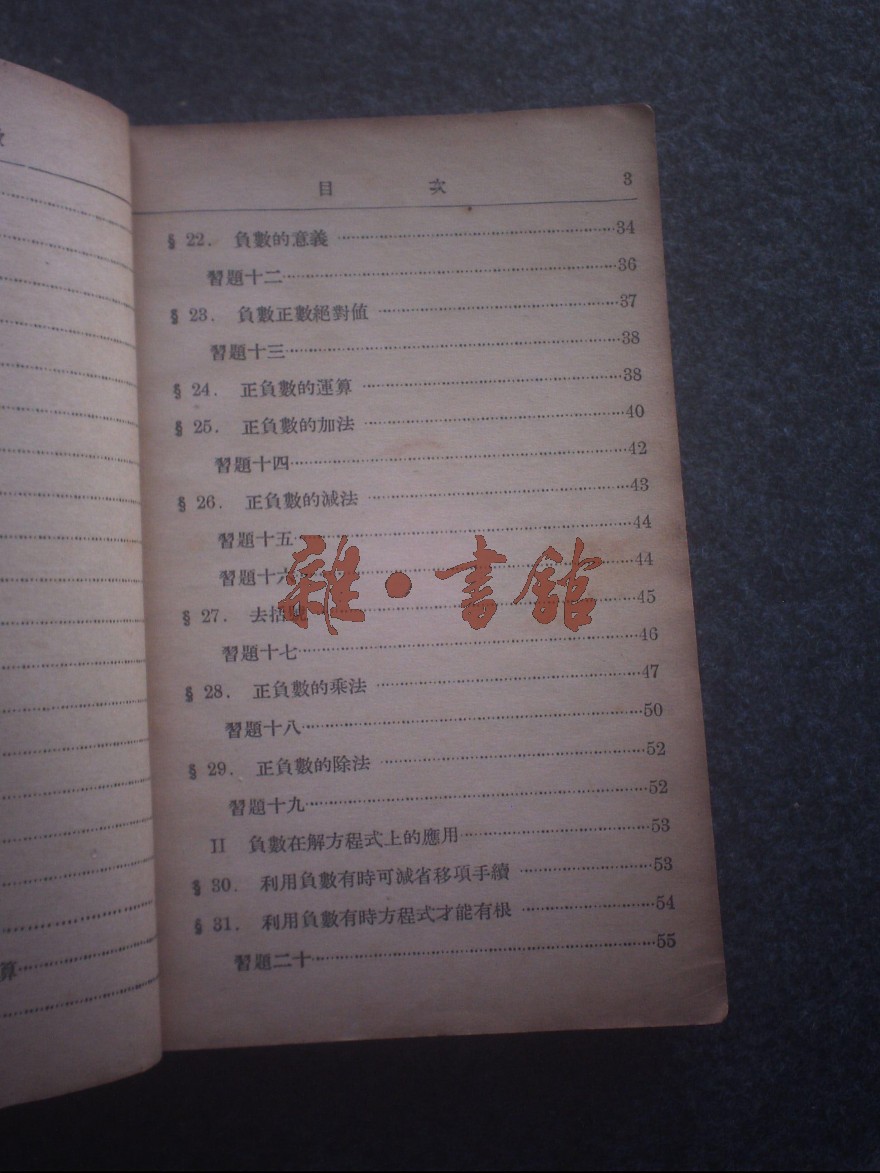 目 次 3
§ 22. 負數的意義 34
習題十二 36
§ 23. 負數正數絕對値 37
習題十三 38
§ 24. 正負數的運算 38
§ 25. 正負數的加法 40
習題十四 42
§ 26. 正負數的減法 43
習題十五 44
習題十六 44
雜·書館
§ 27. 去括號 45
習題十七 46
§ 28. 正負數的乘法 47
習題十八 50
§ 29. 正負數的除法 52
習題十九 52
II 負數在解方程式上的應用 53
§ 30. 利用負數有時可減省移項手續 53
§ 31. 利用負數有時方程式才能有根 54
習題二十 55
算